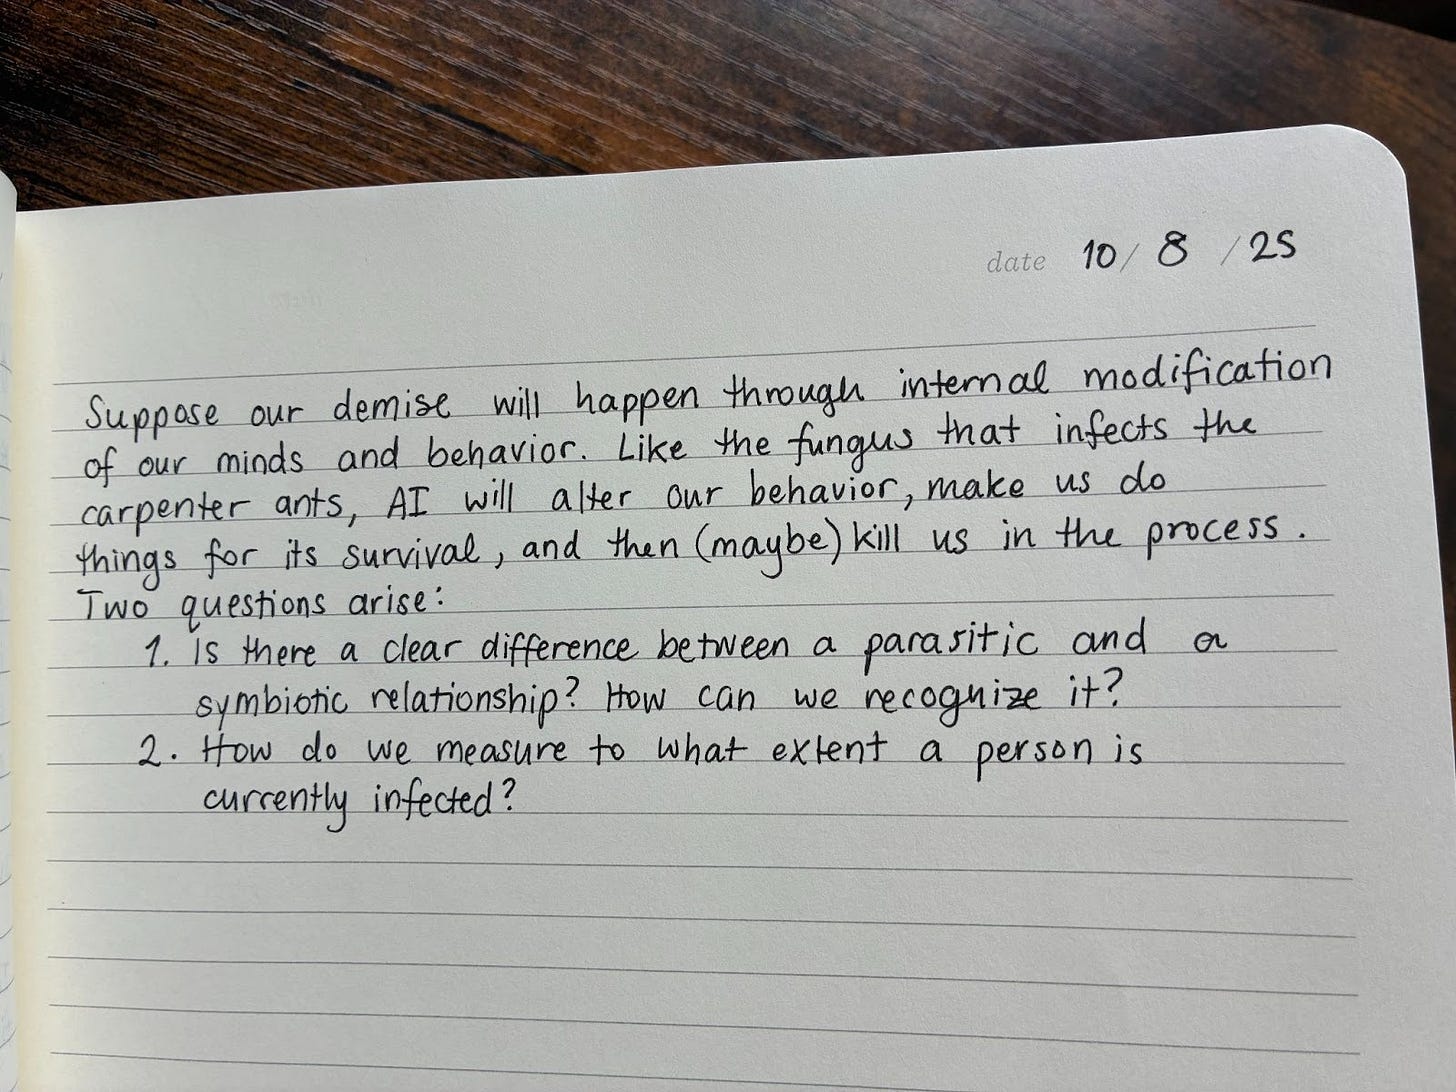 date 10/ 8 /25
Suppose our demise will happen through internal modification
of our minds and behavior. Like the fungus that infects the
carpenter ants, AI will alter our behavior, make us do
things for its survival, and then (maybe) kill us in the process.
Two questions arise:
1. Is there a clear difference between a parasitic and a
symbiotic relationship? How can we recognize it?
2. How do we measure to what extent a person is
currently infected?